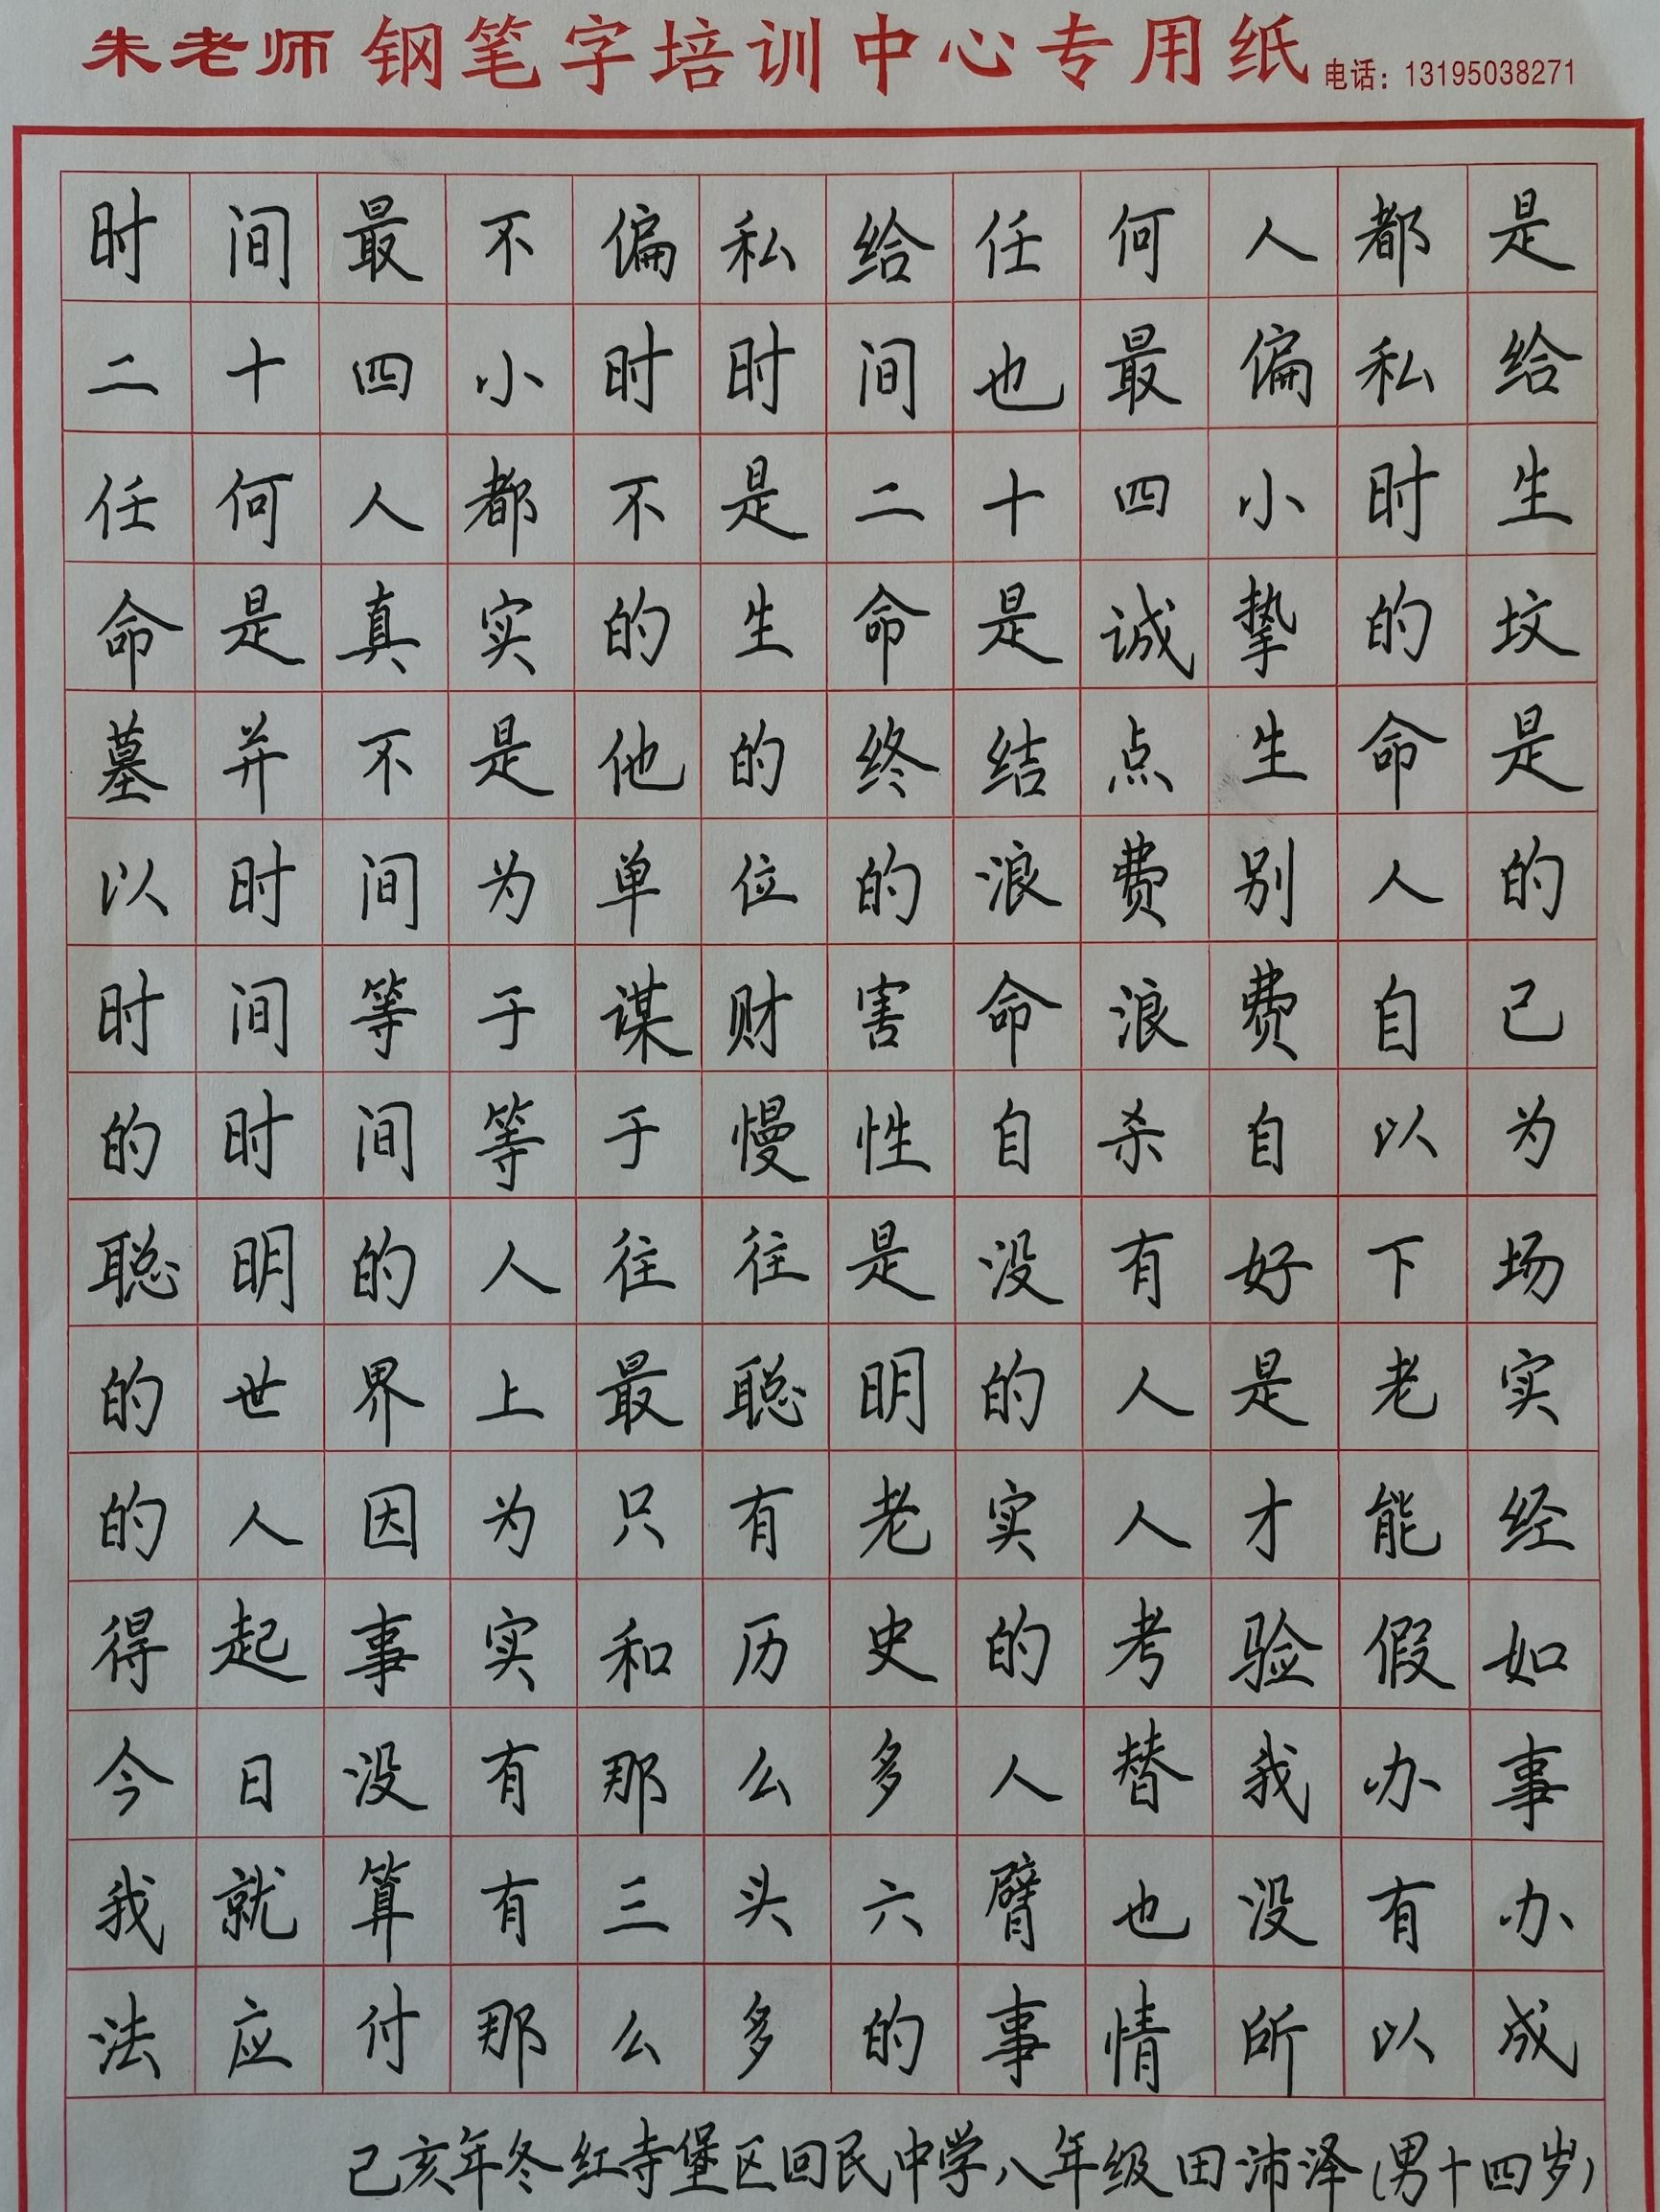 朱老师钢笔字培训中心专用纸 电话：13195038271
时间最不偏私给任何人都是
二十四小时时间也最偏私给
任何人都不是二十四小时生
命是真实的生命是诚挚的坟
墓并不是他的终结点生命是
以时间为单位的浪费别人的
时间等于谋财害命浪费自己
的时间等于慢性自杀自以为
聪明的人往往是没有好下场
的世界上最聪明的人是老实
的人因为只有老实人才能经
得起事实和历史的考验假如
今日没有那么多人替我办事
我就算有三头六臂也没有办
法应付那么多的事情所以成
己亥年冬红寺堡区回民中学八年级田沛泽(男十四岁)